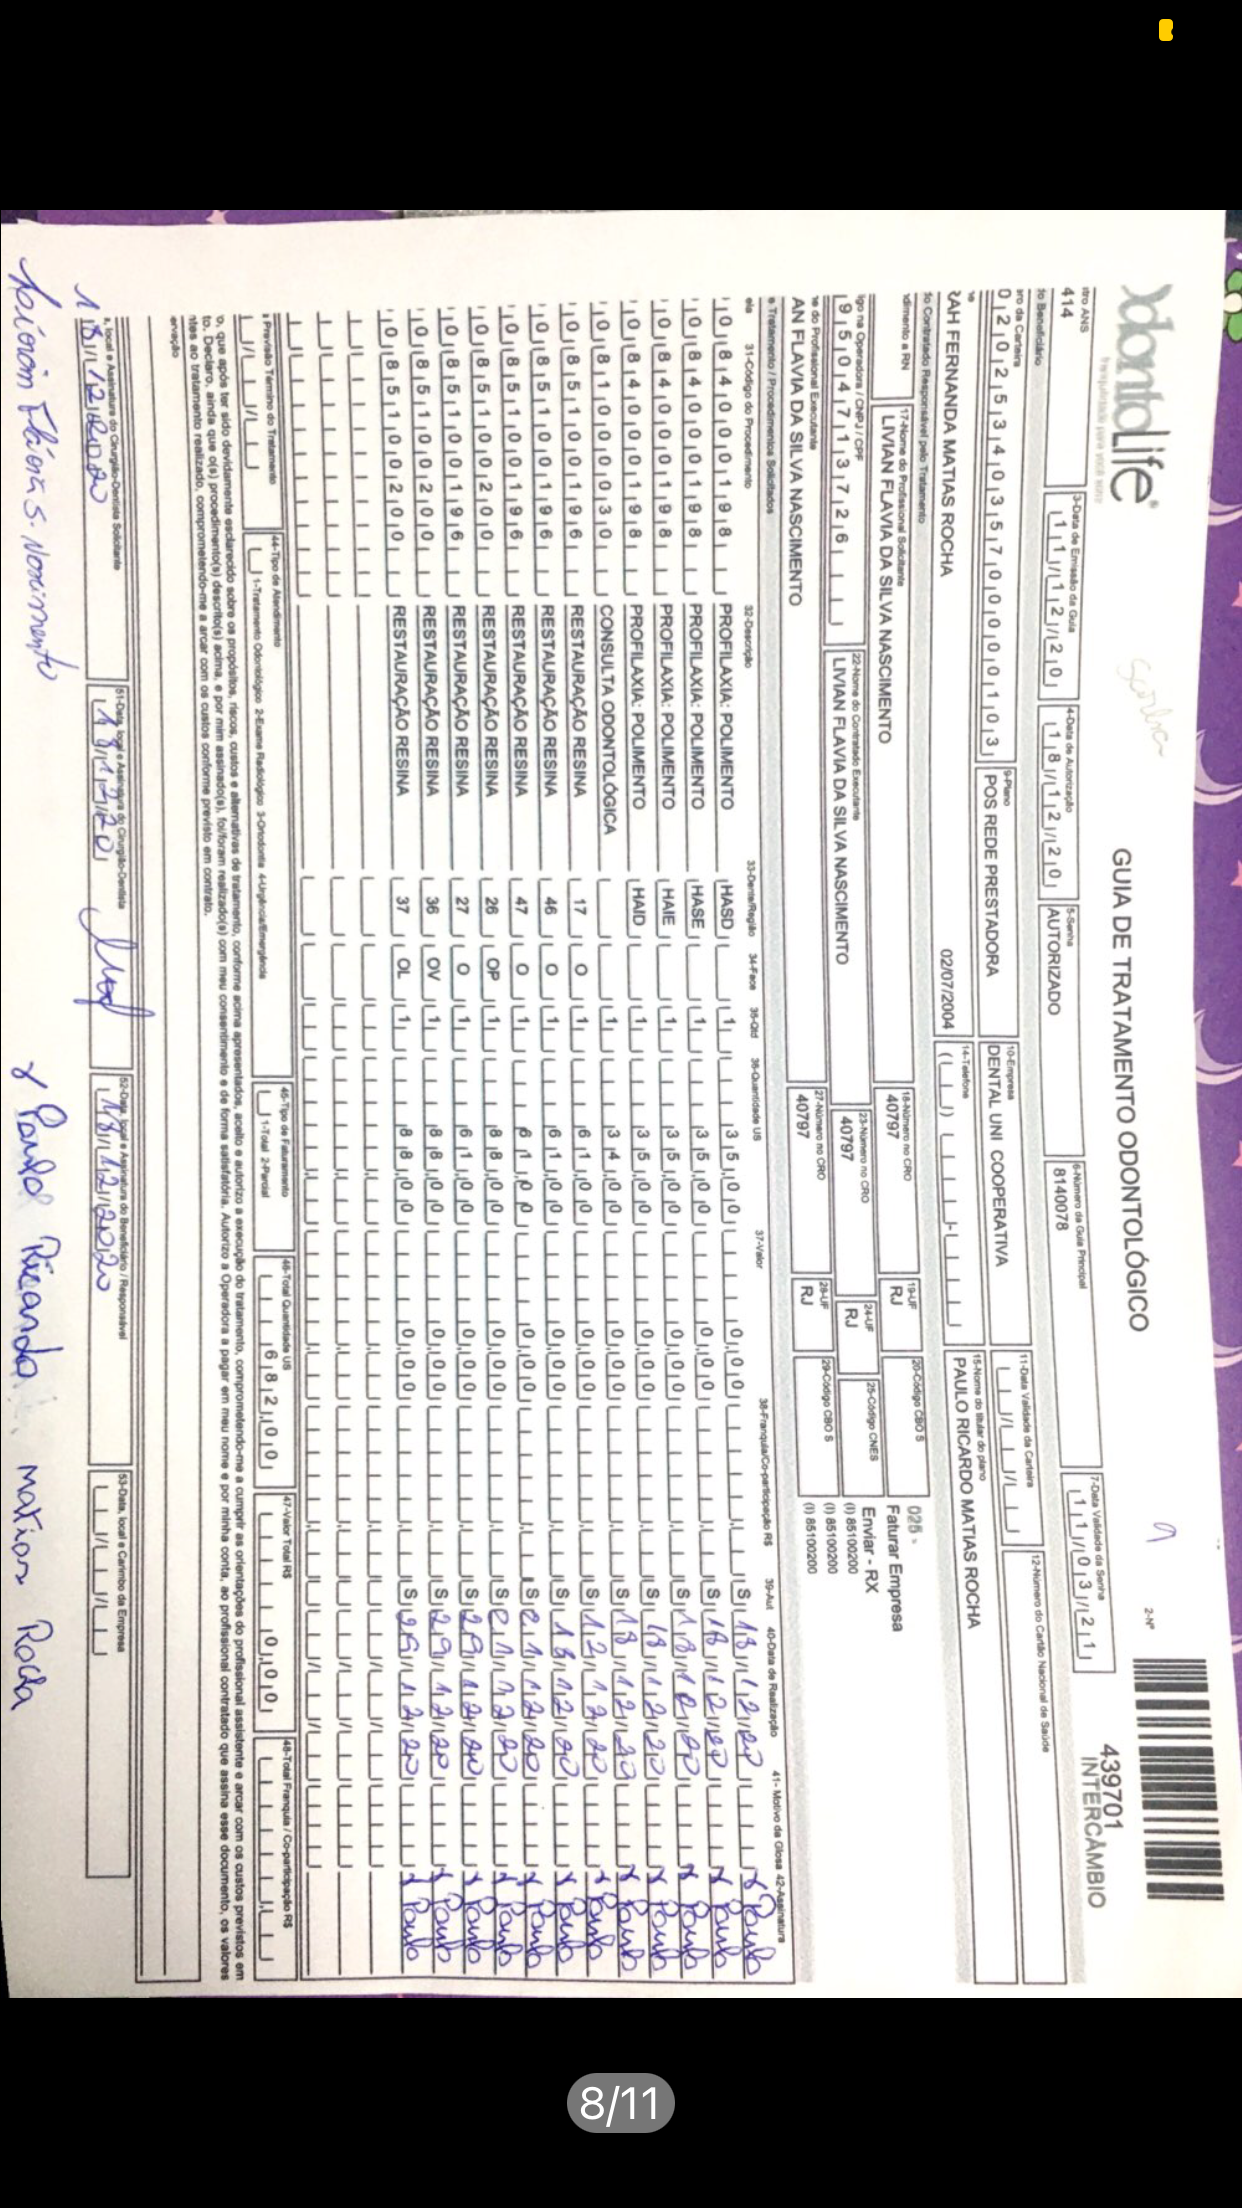 OdontoLife®
franqueado para você sorrir
GUIA DE TRATAMENTO ODONTOLÓGICO
2-Nº
439701
INTERCÂMBIO
stro ANS
414
3-Data de Emissão da Guia
11/12/20
4-Data de Autorização
18/12/20
5-Senha
AUTORIZADO
6-Número da Guia Principal
8140078
7-Data Validade da Senha
11/03/21
do Beneficiário
ero da Carteira
02025340357000000103
9-Plano
POS REDE PRESTADORA
10-Empresa
DENTAL UNI COOPERATIVA
11-Data Validade da Carteira
12-Número do Cartão Nacional de Saúde
RAH FERNANDA MATIAS ROCHA
02/07/2004
14-Telefone
15-Nome do titular do plano
PAULO RICARDO MATIAS ROCHA
do Contratado Responsável pelo Tratamento
dimento a RN
17-Nome do Profissional Solicitante
LIVIAN FLAVIA DA SILVA NASCIMENTO
18-Número no CRO
40797
19-UF
RJ
20-Código CBO S
025 -
Faturar Empresa
igo na Operadora / CNPJ / CPF
9504713726
22-Nome do Contratado Executante
LIVIAN FLAVIA DA SILVA NASCIMENTO
23-Número no CRO
40797
24-UF
RJ
25-Código CNES
Enviar - RX
(I) 85100200
(I) 85100200
(I) 85100200
ne do Profissional Executante
AN FLAVIA DA SILVA NASCIMENTO
27-Número no CRO
40797
28-UF
RJ
29-Código CBO S
e Tratamento / Procedimentos Solicitados
ela 31-Código do Procedimento 32-Descrição 33-Dente/Região 34-Face 35-Qtd 36-Quantidade US 37-Valor 38-Franquia/Co-participação R$ 39-Aut 40-Data de Realização 41- Motivo da Glosa 42-Assinatura
084000198 PROFILAXIA: POLIMENTO HASD 1 35,00 0,00 S 18/12/20 x Paulo
084000198 PROFILAXIA: POLIMENTO HASE 1 35,00 0,00 S 18/12/20 x Paulo
084000198 PROFILAXIA: POLIMENTO HAIE 1 35,00 0,00 S 18/12/20 x Paulo
084000198 PROFILAXIA: POLIMENTO HAID 1 35,00 0,00 S 18/12/20 x Paulo
081000030 CONSULTA ODONTOLÓGICA 1 34,00 0,00 S 18/12/20 x Paulo
085100196 RESTAURAÇÃO RESINA 17 O 1 61,00 0,00 S x Paulo
085100196 RESTAURAÇÃO RESINA 46 O 1 61,00 0,00 S x Paulo
085100196 RESTAURAÇÃO RESINA 47 O 1 61,00 0,00 S 21/12/20 x Paulo
085100200 RESTAURAÇÃO RESINA 26 OP 1 88,00 0,00 S 21/12/20 x Paulo
085100196 RESTAURAÇÃO RESINA 27 O 1 61,00 0,00 S 29/12/20 x Paulo
085100200 RESTAURAÇÃO RESINA 36 OV 1 88,00 0,00 S 29/12/20 x Paulo
085100200 RESTAURAÇÃO RESINA 37 OL 1 88,00 0,00 S 29/12/20 x Paulo
a Previsão Término do Tratamento
44-Tipo de Atendimento
1-Tratamento Odontológico 2-Exame Radiológico 3-Ortodontia 4-Urgência/Emergência
45-Tipo de Faturamento
1-Total 2-Parcial
46-Total Quantidade US
682,00
47-Valor Total R$
0,00
48-Total Franquia / Co-participação R$
o, que após ter sido devidamente esclarecido sobre os propósitos, riscos, custos e alternativas de tratamento, conforme acima apresentados, aceito e autorizo a execução do tratamento, comprometendo-me a cumprir as orientações do profissional assistente e arcar com os custos previstos em
to. Declaro, ainda que o(s) procedimento(s) descrito(s) acima, e por mim assinado(s), foi/foram realizado(s) com meu consentimento e de forma satisfatória. Autorizo a Operadora a pagar em meu nome e por minha conta, ao profissional contratado que assina esse documento, os valores
ntes ao tratamento realizado, comprometendo-me a arcar com os custos conforme previsto em contrato.
ervação
a, local e Assinatura do Cirurgião-Dentista Solicitante
18/12/2020
51-Data, local e Assinatura do Cirurgião-Dentista
18/12/20
52-Data, local e Assinatura do Beneficiário / Responsável
18/12/2020
53-Data, local e Carimbo da Empresa
x Paulo Ricardo matias Rocha
8/11